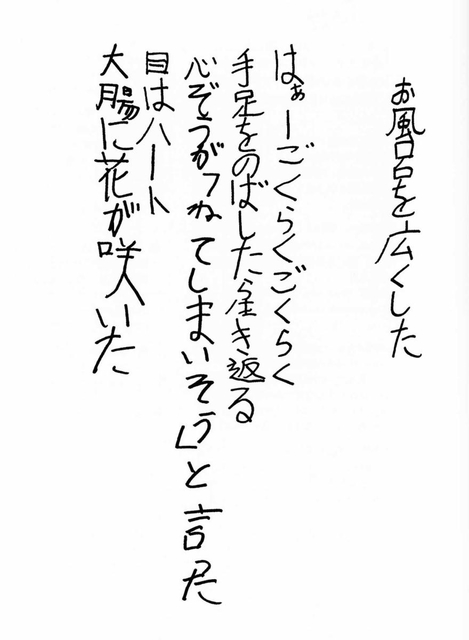 お風呂を広くした
はぁーごくらくごくらく
手足をのばしたら生き返る
心ぞうがつねてしまいそう」と言った
目はハート
大腸に花が咲いた